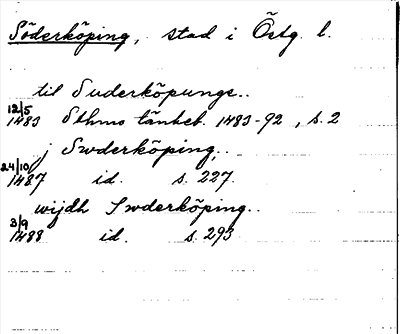 Söderköping, stad i Östg. l.
til Suderköpunge..
12/5 1483 Sthms tänkeb. 1483-92, s. 2
j Swderköping,..
24/10 1487 id. s. 227.
wijdh Swderköping..
3/9 1488 id. s. 293